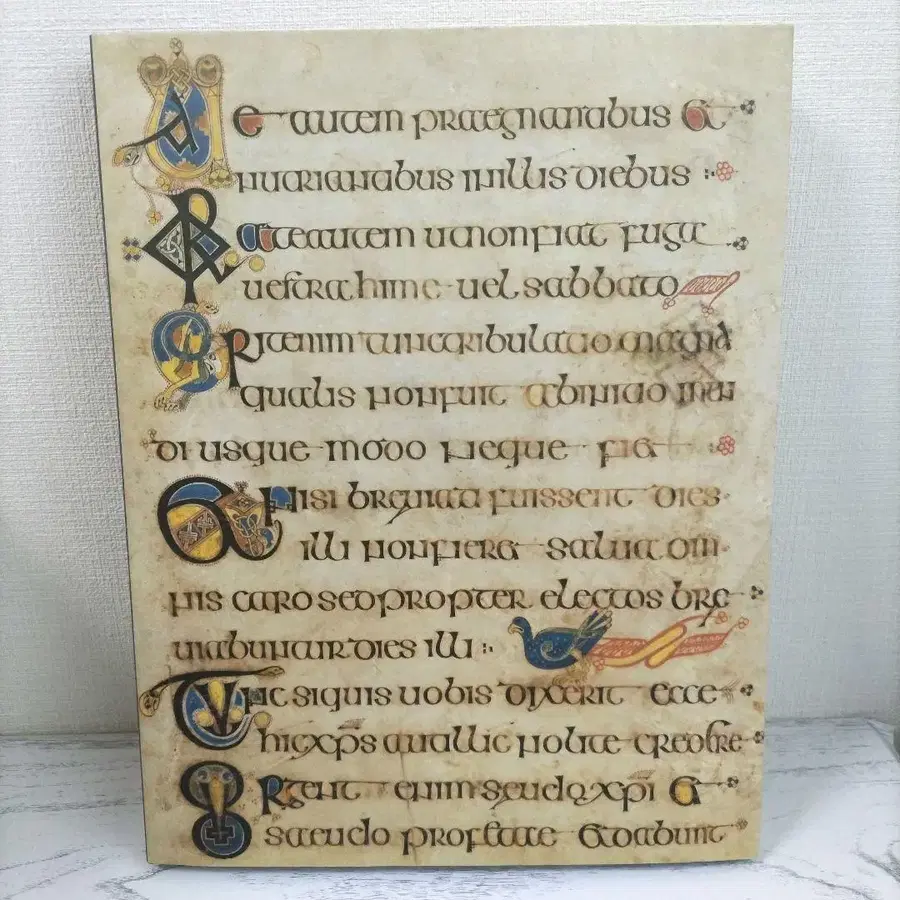 Uae autem praegnantibus et
nutrientibus in illis diebus :
Orate autem ut non fiat fuga
uestra hieme uel sabbato
Erit enim tunc tribulatio magna
qualis non fuit ab initio mun
di usque modo neque fiet
Et nisi breuiati fuissent dies
illi non fieret salua om
nis caro sed propter electos bre
uiabuntur dies illi :
Tunc siquis uobis dixerit ecce
hic xps aut illic nolite credere
Surgent enim seudo xpi et
seudo profetae et dabunt